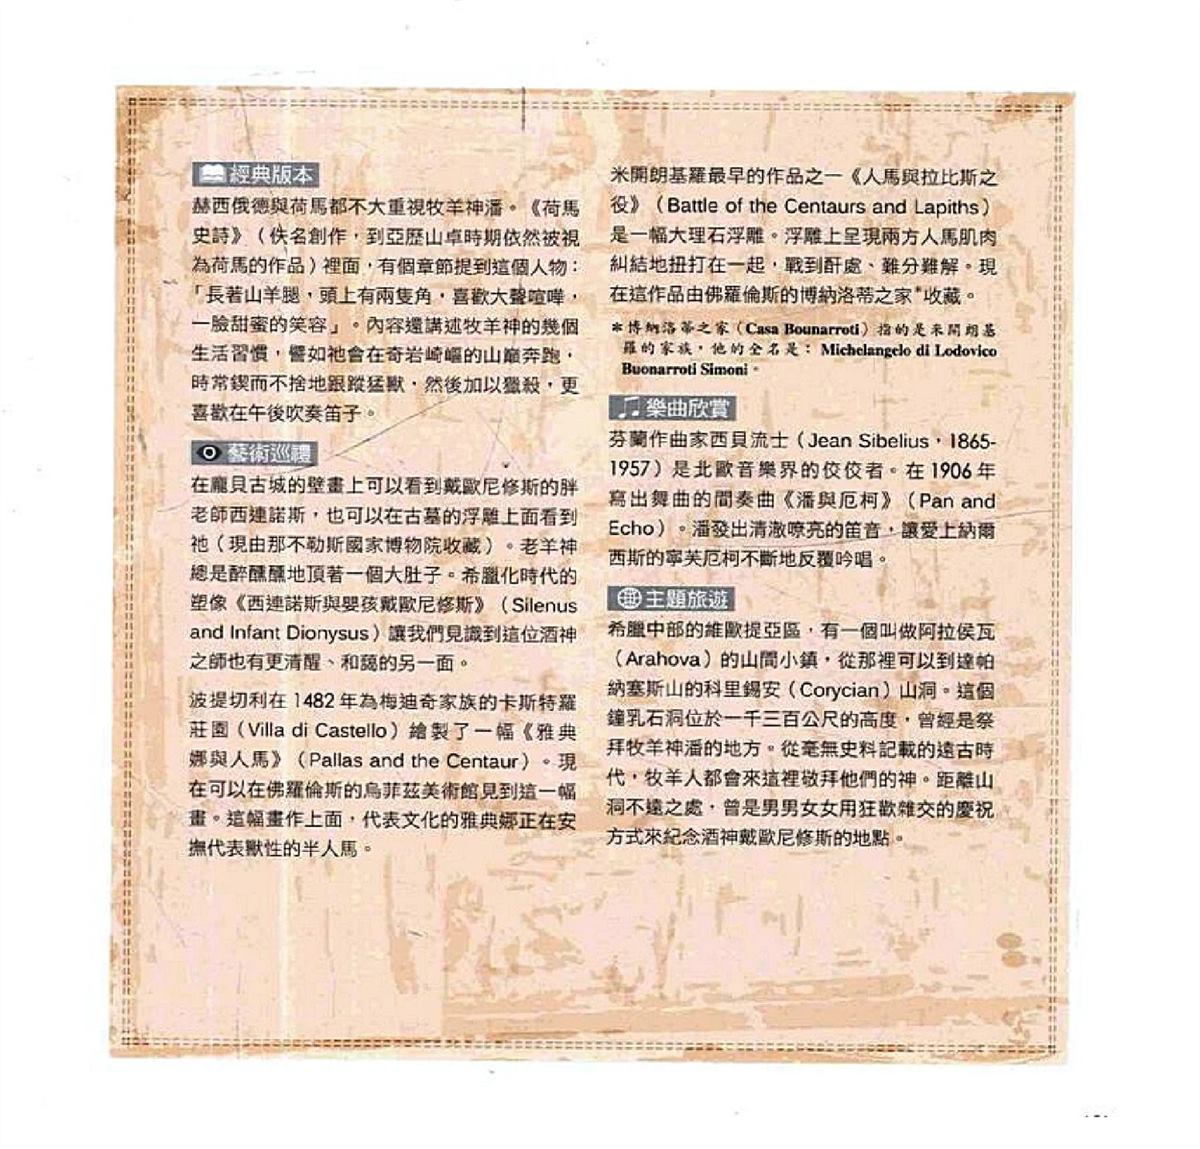 經典版本
赫西俄德與荷馬都不大重視牧羊神潘。《荷馬
史詩》（佚名創作，到亞歷山卓時期依然被視
為荷馬的作品）裡面，有個章節提到這個人物：
「長著山羊腿，頭上有兩隻角，喜歡大聲喧嘩，
一臉甜蜜的笑容」。內容還講述牧羊神的幾個
生活習慣，譬如祂會在奇岩崎嶇的山巔奔跑，
時常鍥而不捨地跟蹤猛獸，然後加以獵殺，更
喜歡在午後吹奏笛子。
藝術巡禮
在龐貝古城的壁畫上可以看到戴歐尼修斯的胖
老師西連諾斯，也可以在古墓的浮雕上面看到
祂（現由那不勒斯國家博物院收藏）。老羊神
總是醉醺醺地頂著一個大肚子。希臘化時代的
塑像《西連諾斯與嬰孩戴歐尼修斯》（Silenus
and Infant Dionysus）讓我們見識到這位酒神
之師也有更清醒、和藹的另一面。
波提切利在 1482 年為梅迪奇家族的卡斯特羅
莊園（Villa di Castello）繪製了一幅《雅典
娜與人馬》（Pallas and the Centaur）。現
在可以在佛羅倫斯的烏菲茲美術館見到這一幅
畫。這幅畫作上面，代表文化的雅典娜正在安
撫代表獸性的半人馬。
米開朗基羅最早的作品之一《人馬與拉比斯之
役》（Battle of the Centaurs and Lapiths）
是一幅大理石浮雕。浮雕上呈現兩方人馬肌肉
糾結地扭打在一起，戰到酣處、難分難解。現
在這作品由佛羅倫斯的博納洛蒂之家*收藏。
*博納洛蒂之家（Casa Bounarroti）指的是米開朗基
羅的家族，他的全名是：Michelangelo di Lodovico
Buonarroti Simoni。
樂曲欣賞
芬蘭作曲家西貝流士（Jean Sibelius，1865-
1957）是北歐音樂界的佼佼者。在 1906 年
寫出舞曲的間奏曲《潘與厄柯》（Pan and
Echo）。潘發出清澈嘹亮的笛音，讓愛上納爾
西斯的寧芙厄柯不斷地反覆吟唱。
主題旅遊
希臘中部的維歐提亞區，有一個叫做阿拉侯瓦
（Arahova）的山間小鎮，從那裡可以到達帕
納塞斯山的科里錫安（Corycian）山洞。這個
鐘乳石洞位於一千三百公尺的高度，曾經是祭
拜牧羊神潘的地方。從毫無史料記載的遠古時
代，牧羊人都會來這裡敬拜他們的神。距離山
洞不遠之處，曾是男男女女用狂歡雜交的慶祝
方式來紀念酒神戴歐尼修斯的地點。